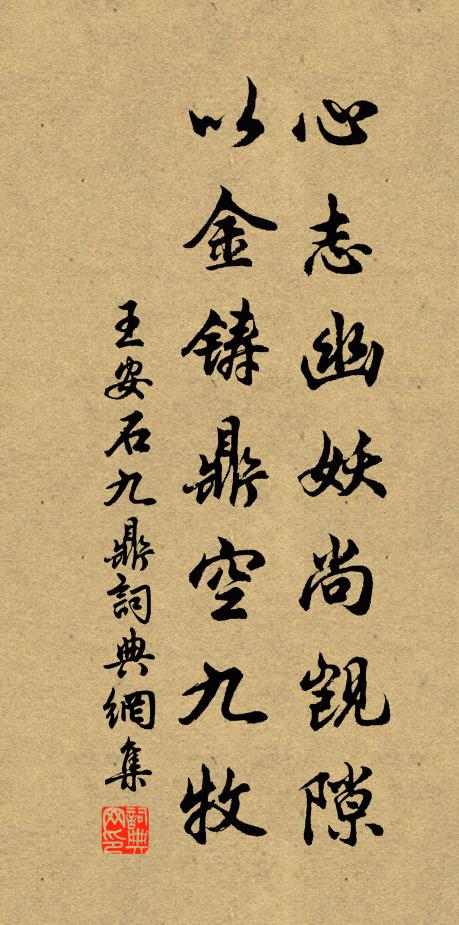 心志幽妖尚覬隙
以金鑄鼎空九牧
王安石九鼎詞典網集
詞典网印